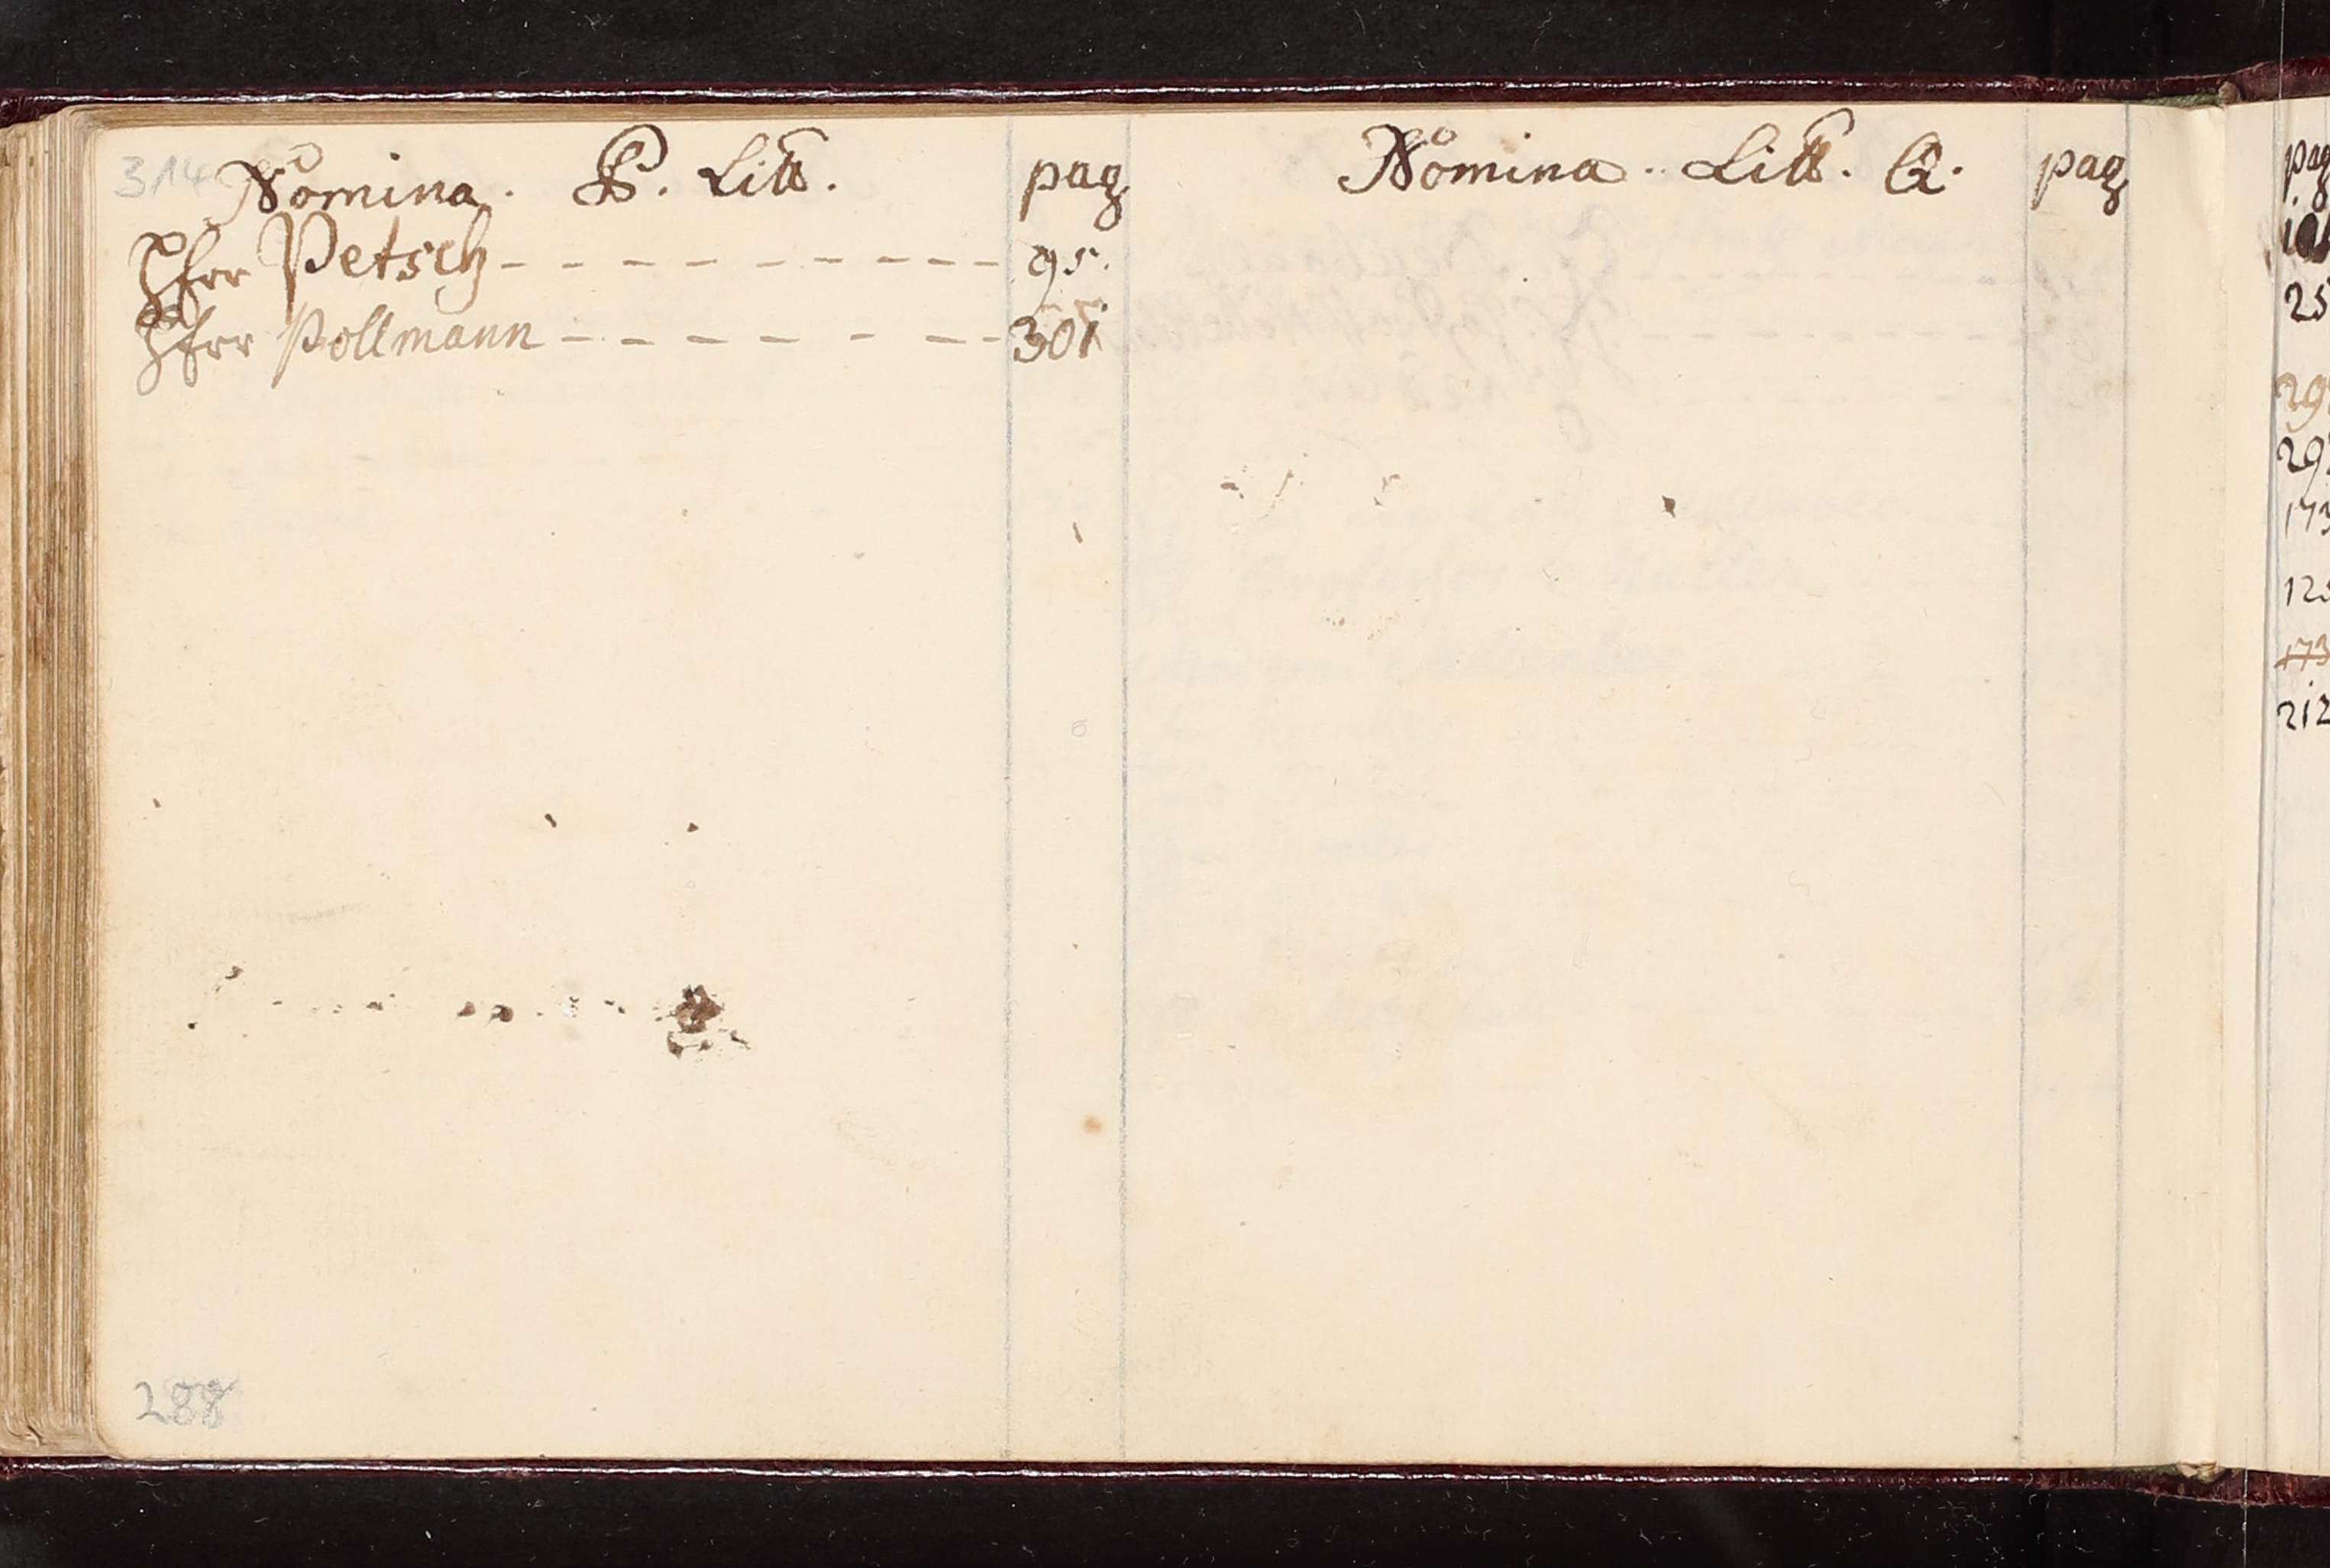 314
Nomina. P. Litt. pag
Pfrr Petsch - - - - - - - - - - 95.
Pfrr Pollmann - - - - - - - - 301
Nomina. Litt. Q. pag
288
pag
25
29
29
173
12
173
212